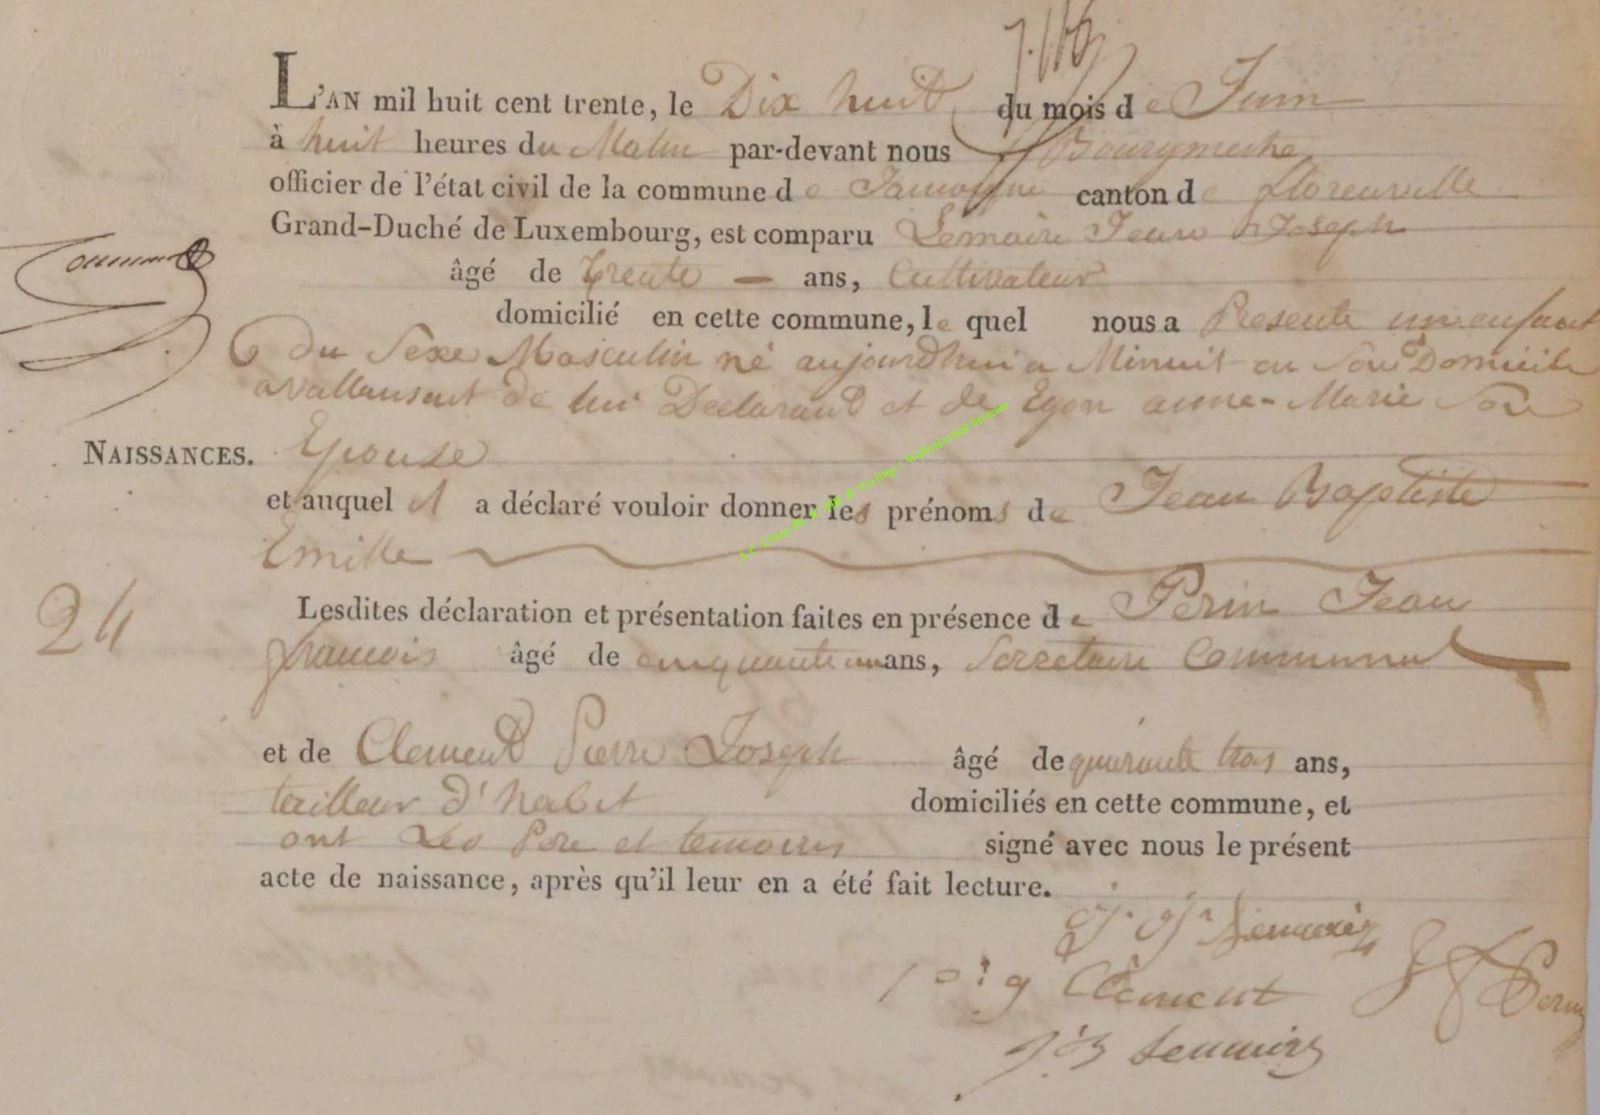 L'AN mil huit cent trente, le Dix huit du mois de Juin
à huit heures du Matin par-devant nous
officier de l'état civil de la commune de Jamoigne canton de florenville
Grand-Duché de Luxembourg, est comparu Lemaire Jean Joseph
âgé de trente — ans, Cultivateur
domicilié en cette commune, le quel nous a Presenté un enfant
du Sexe Masculin né aujourdhui a Minuit en Son Domicile
a vallansart de lui Declarant et de Egon anne-Marie Son
NAISSANCES.
Epouse
et auquel il a déclaré vouloir donner les prénoms de Jean Baptiste
Emille
24
Lesdites déclaration et présentation faites en présence de Perin Jean
francois âgé de cinquante un ans, Secretaire Communal
et de Clement Pierre Joseph âgé de quarante trois ans,
tailleur d'habit domiciliés en cette commune, et
ont Les Pere et temoins signé avec nous le présent
acte de naissance, après qu'il leur en a été fait lecture.
Clément